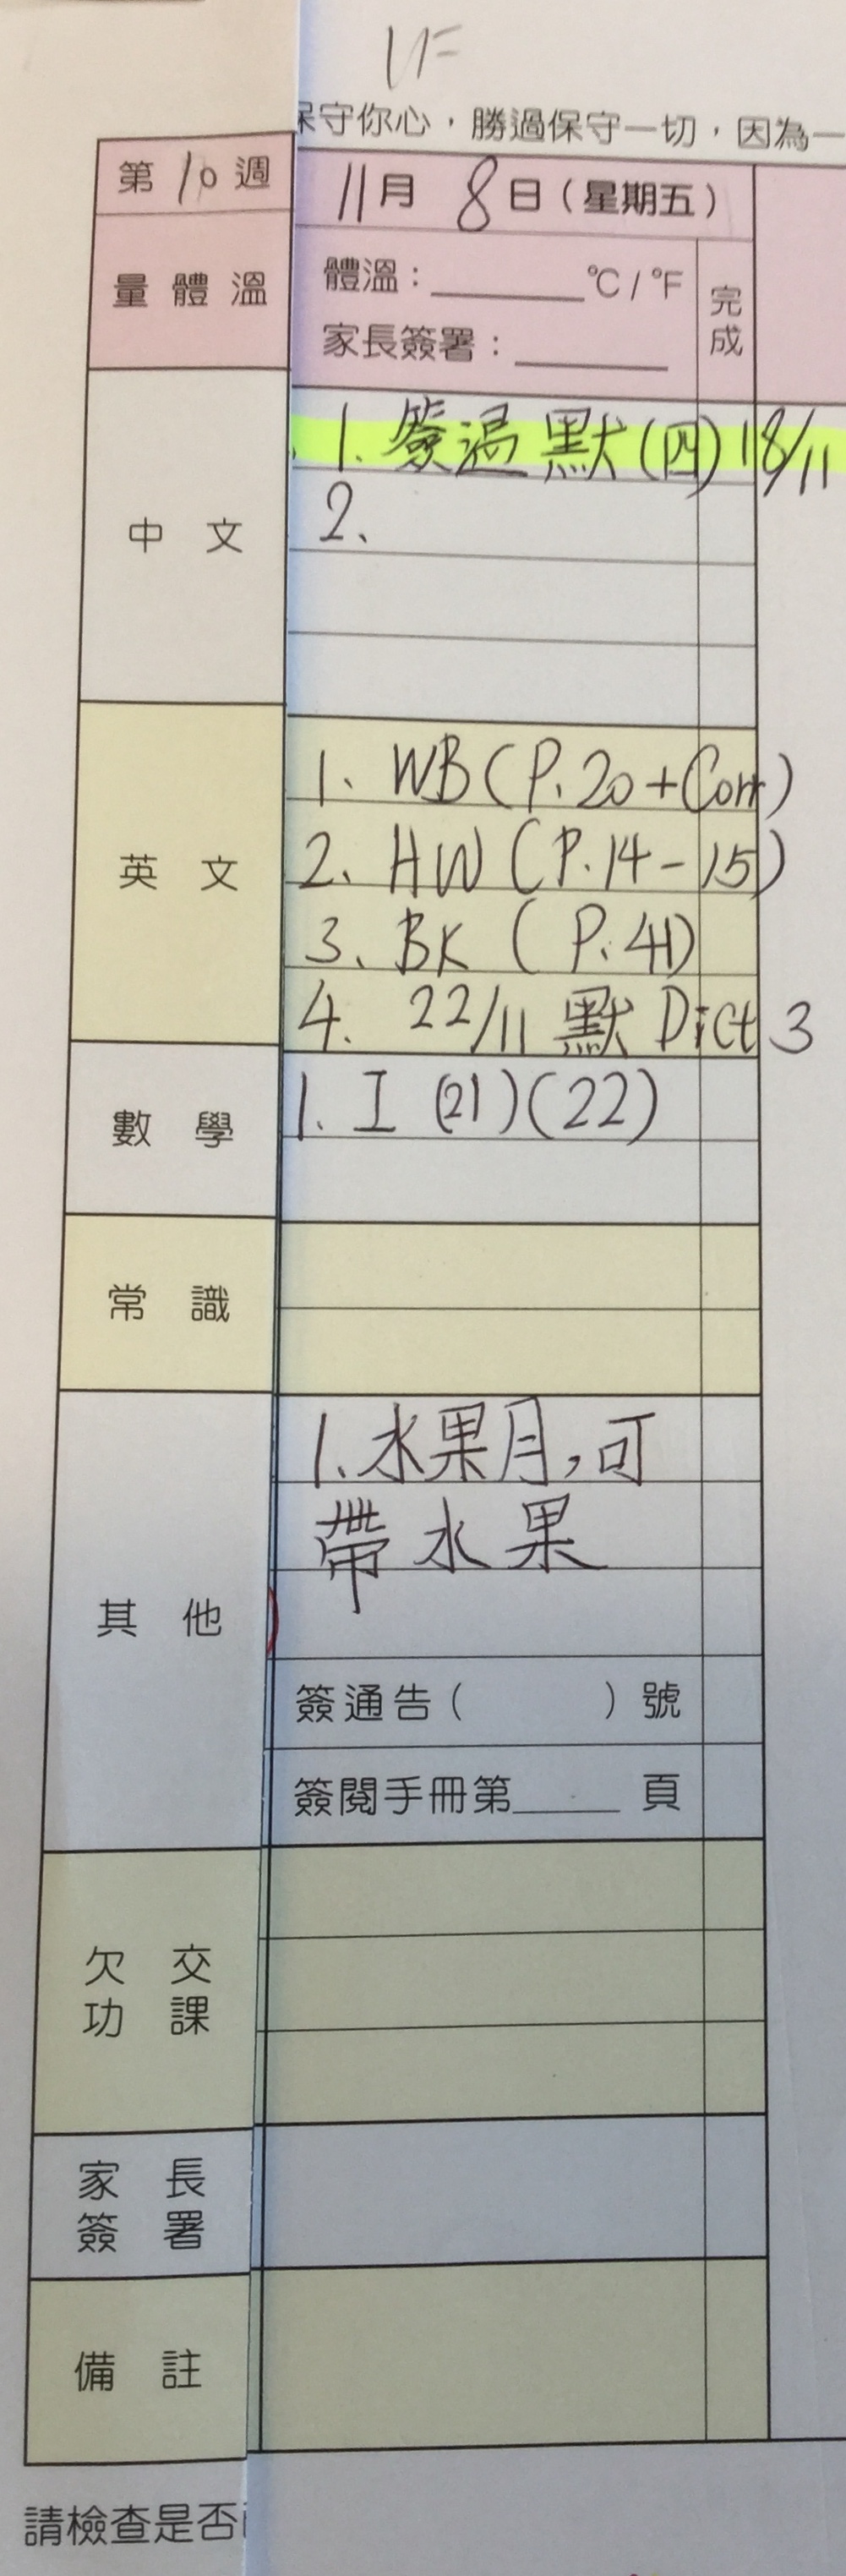 1F
保守你心，勝過保守一切，因為一
第10週
11月8日（星期五）
量體溫
體溫：______°C / °F
家長簽署：______
完成
中文
1. 簽過默(四)18/11
2.
英文
1. WB (P.20+Corr)
2. HW (P.14-15)
3. BK (P.41)
4. 22/11 默 Dict 3
數學
1. I (21)(22)
常識
其他
1. 水果月，可
帶水果
簽通告（ ）號
簽閱手冊第______頁
欠交
功課
家長
簽署
備註
請檢查是否